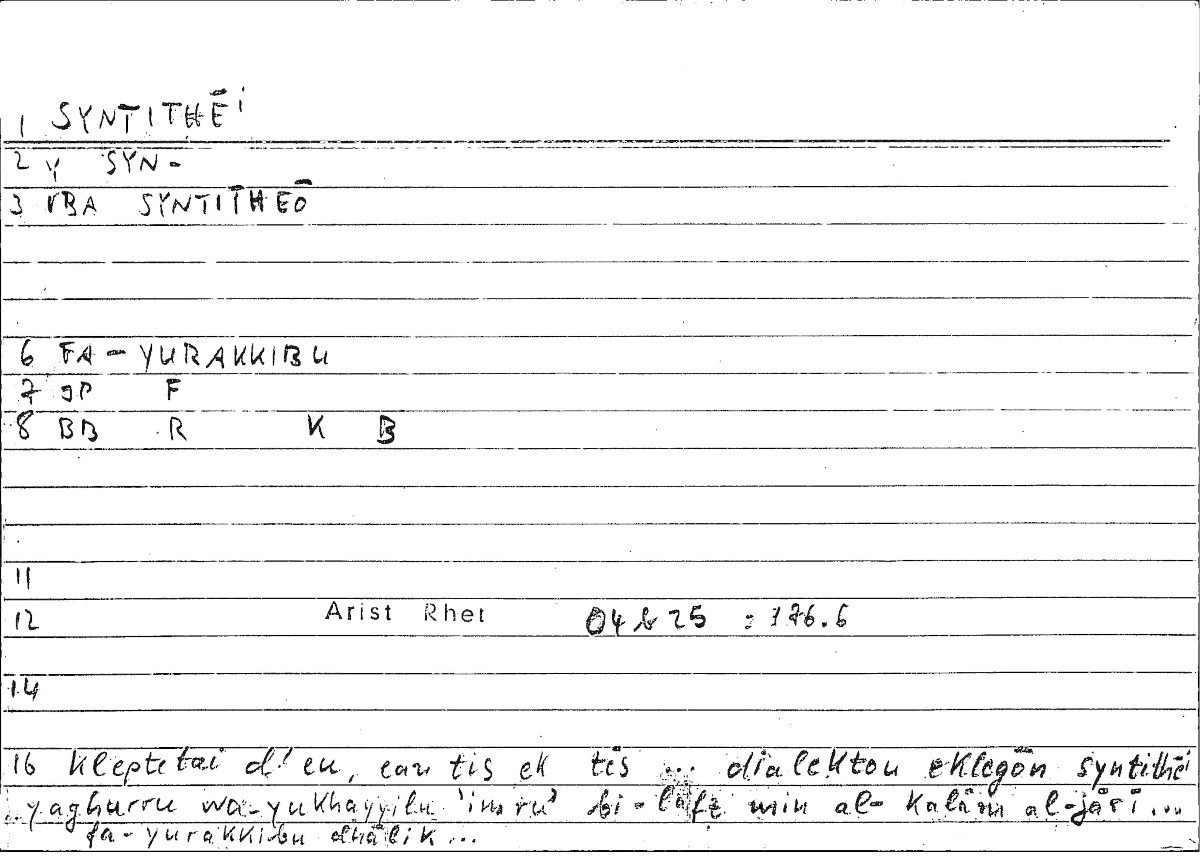 1 SYNTITHĒⁱ
2 Y SYN-
3 VBA SYNTITHEŌ
6 FA-YURAKKIBU
7 9P F
8 BB R K B
11
12 Arist Rhet 04 b 25 : 176.6
14
16 kleptetai d' eu, ean tis ek tēs ... dialektou eklegōn syntithēⁱ
yaghurru wa-yukhayyilu 'imru' bi-lafẓ min al-kalām al-jārī...
fa-yurakkibu dhālik...